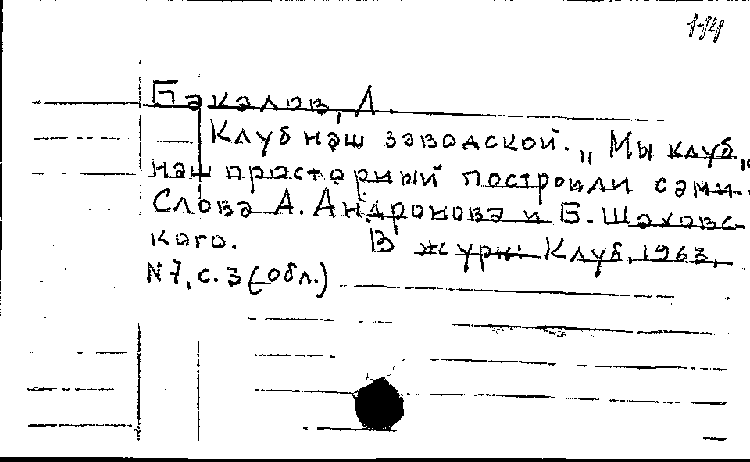 Бакалов, Л.
Клуб наш заводской. „Мы клуб
наш просторный построили сами.."
Слова А. Андронова и Б. Шаховс-
кого. В журн. Клуб, 1963,
N 7, с. 3 (обл.)